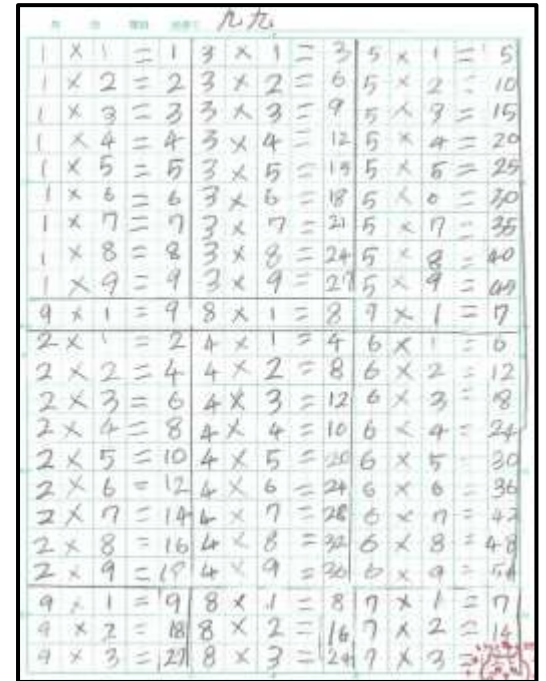 九九
1 × 1 = 1 3 × 1 = 3 5 × 1 = 5
1 × 2 = 2 3 × 2 = 6 5 × 2 = 10
1 × 3 = 3 3 × 3 = 9 5 × 3 = 15
1 × 4 = 4 3 × 4 = 12 5 × 4 = 20
1 × 5 = 5 3 × 5 = 15 5 × 5 = 25
1 × 6 = 6 3 × 6 = 18 5 × 6 = 30
1 × 7 = 7 3 × 7 = 21 5 × 7 = 35
1 × 8 = 8 3 × 8 = 24 5 × 8 = 40
1 × 9 = 9 3 × 9 = 27 5 × 9 =
9 × 1 = 9 8 × 1 = 8 7 × 1 = 7
2 × 1 = 2 4 × 1 = 4 6 × 1 = 6
2 × 2 = 4 4 × 2 = 8 6 × 2 = 12
2 × 3 = 6 4 × 3 = 12 6 × 3 = 18
2 × 4 = 8 4 × 4 = 16 6 × 4 = 24
2 × 5 = 10 4 × 5 = 20 6 × 5 = 30
2 × 6 = 12 4 × 6 = 24 6 × 6 = 36
2 × 7 = 14 4 × 7 = 28 6 × 7 = 42
2 × 8 = 16 4 × 8 = 32 6 × 8 = 48
2 × 9 = 18 4 × 9 = 36 6 × 9 = 54
9 × 1 = 9 8 × 1 = 8 7 × 1 = 7
9 × 2 = 18 8 × 2 = 16 7 × 2 = 14
9 × 3 = 27 8 × 3 = 24 7 × 3 =